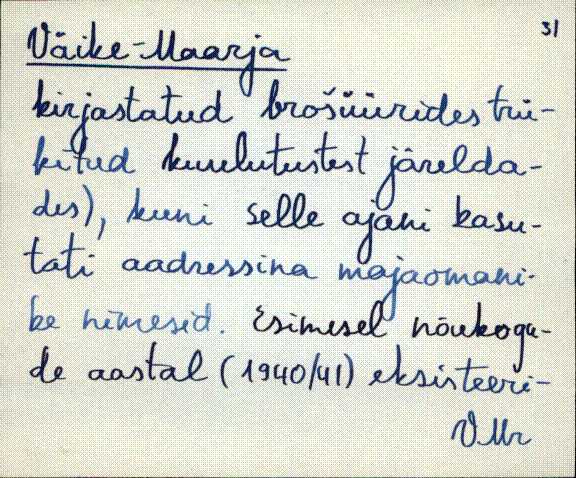 31
Väike-Maarja
kirjastatud brošüürides trü-
kitud kuulutustest järelda-
des), kuni selle ajani kasu-
tati aadressina majaomani-
ke nimesid. Esimesel nõukogu-
de aastal (1940/41) eksisteeri-
VMr